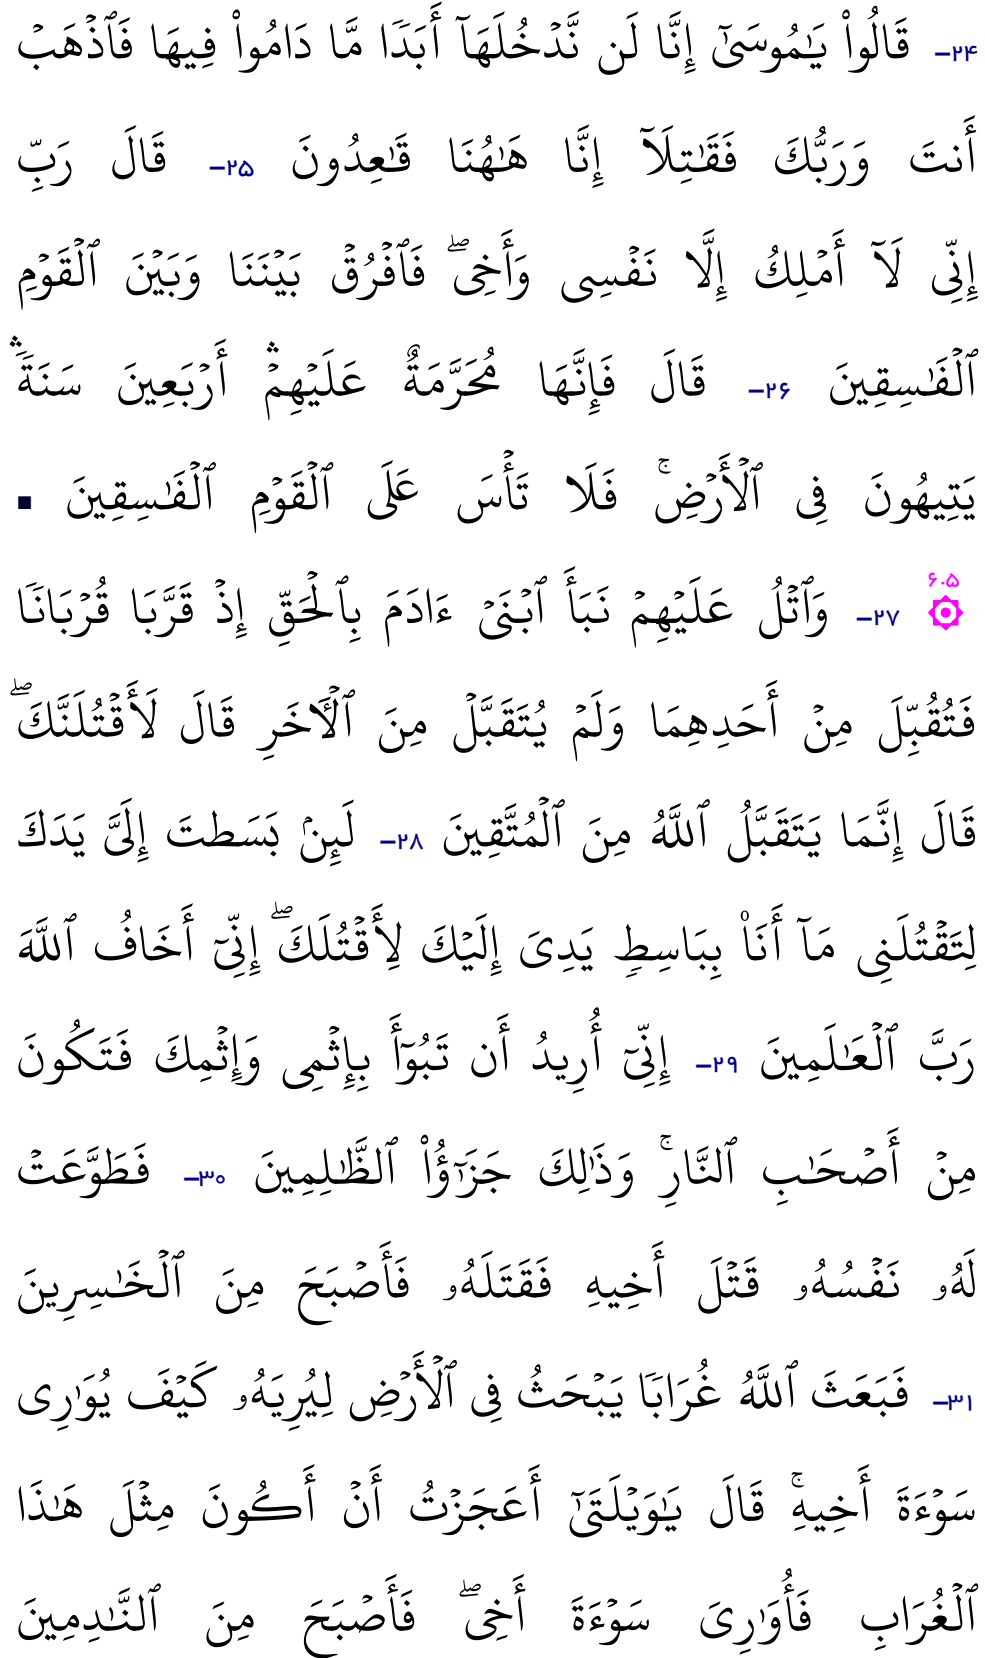 ۲۴- قَالُواْ يَـٰمُوسَىٰٓ إِنَّا لَن نَّدۡخُلَهَآ أَبَدٗا مَّا دَامُواْ فِيهَا فَٱذۡهَبۡ
أَنتَ وَرَبُّكَ فَقَٰتِلَآ إِنَّا هَٰهُنَا قَٰعِدُونَ ۲۵- قَالَ رَبِّ
إِنِّي لَآ أَمۡلِكُ إِلَّا نَفۡسِي وَأَخِيۖ فَٱفۡرُقۡ بَيۡنَنَا وَبَيۡنَ ٱلۡقَوۡمِ
ٱلۡفَٰسِقِينَ ۲۶- قَالَ فَإِنَّهَا مُحَرَّمَةٌ عَلَيۡهِمۡۛ أَرۡبَعِينَ سَنَةٗۛ
يَتِيهُونَ فِي ٱلۡأَرۡضِۚ فَلَا تَأۡسَ عَلَى ٱلۡقَوۡمِ ٱلۡفَٰسِقِينَ ■
۶۰۵ ۞ ۲۷- وَٱتۡلُ عَلَيۡهِمۡ نَبَأَ ٱبۡنَيۡ ءَادَمَ بِٱلۡحَقِّ إِذۡ قَرَّبَا قُرۡبَانٗا
فَتُقُبِّلَ مِنۡ أَحَدِهِمَا وَلَمۡ يُتَقَبَّلۡ مِنَ ٱلۡأٓخَرِ قَالَ لَأَقۡتُلَنَّكَۖ
قَالَ إِنَّمَا يَتَقَبَّلُ ٱللَّهُ مِنَ ٱلۡمُتَّقِينَ ۲۸- لَئِنۢ بَسَطتَ إِلَيَّ يَدَكَ
لِتَقۡتُلَنِي مَآ أَنَا۠ بِبَاسِطٖ يَدِيَ إِلَيۡكَ لِأَقۡتُلَكَۖ إِنِّيٓ أَخَافُ ٱللَّهَ
رَبَّ ٱلۡعَٰلَمِينَ ۲۹- إِنِّيٓ أُرِيدُ أَن تَبُوٓأَ بِإِثۡمِي وَإِثۡمِكَ فَتَكُونَ
مِنۡ أَصۡحَٰبِ ٱلنَّارِۚ وَذَٰلِكَ جَزَٰٓؤُاْ ٱلظَّٰلِمِينَ ۳۰- فَطَوَّعَتۡ
لَهُۥ نَفۡسُهُۥ قَتۡلَ أَخِيهِ فَقَتَلَهُۥ فَأَصۡبَحَ مِنَ ٱلۡخَٰسِرِينَ
۳۱- فَبَعَثَ ٱللَّهُ غُرَابٗا يَبۡحَثُ فِي ٱلۡأَرۡضِ لِيُرِيَهُۥ كَيۡفَ يُوَٰرِي
سَوۡءَةَ أَخِيهِۚ قَالَ يَٰوَيۡلَتَىٰٓ أَعَجَزۡتُ أَنۡ أَكُونَ مِثۡلَ هَٰذَا
ٱلۡغُرَابِ فَأُوَٰرِيَ سَوۡءَةَ أَخِيۖ فَأَصۡبَحَ مِنَ ٱلنَّٰدِمِينَ